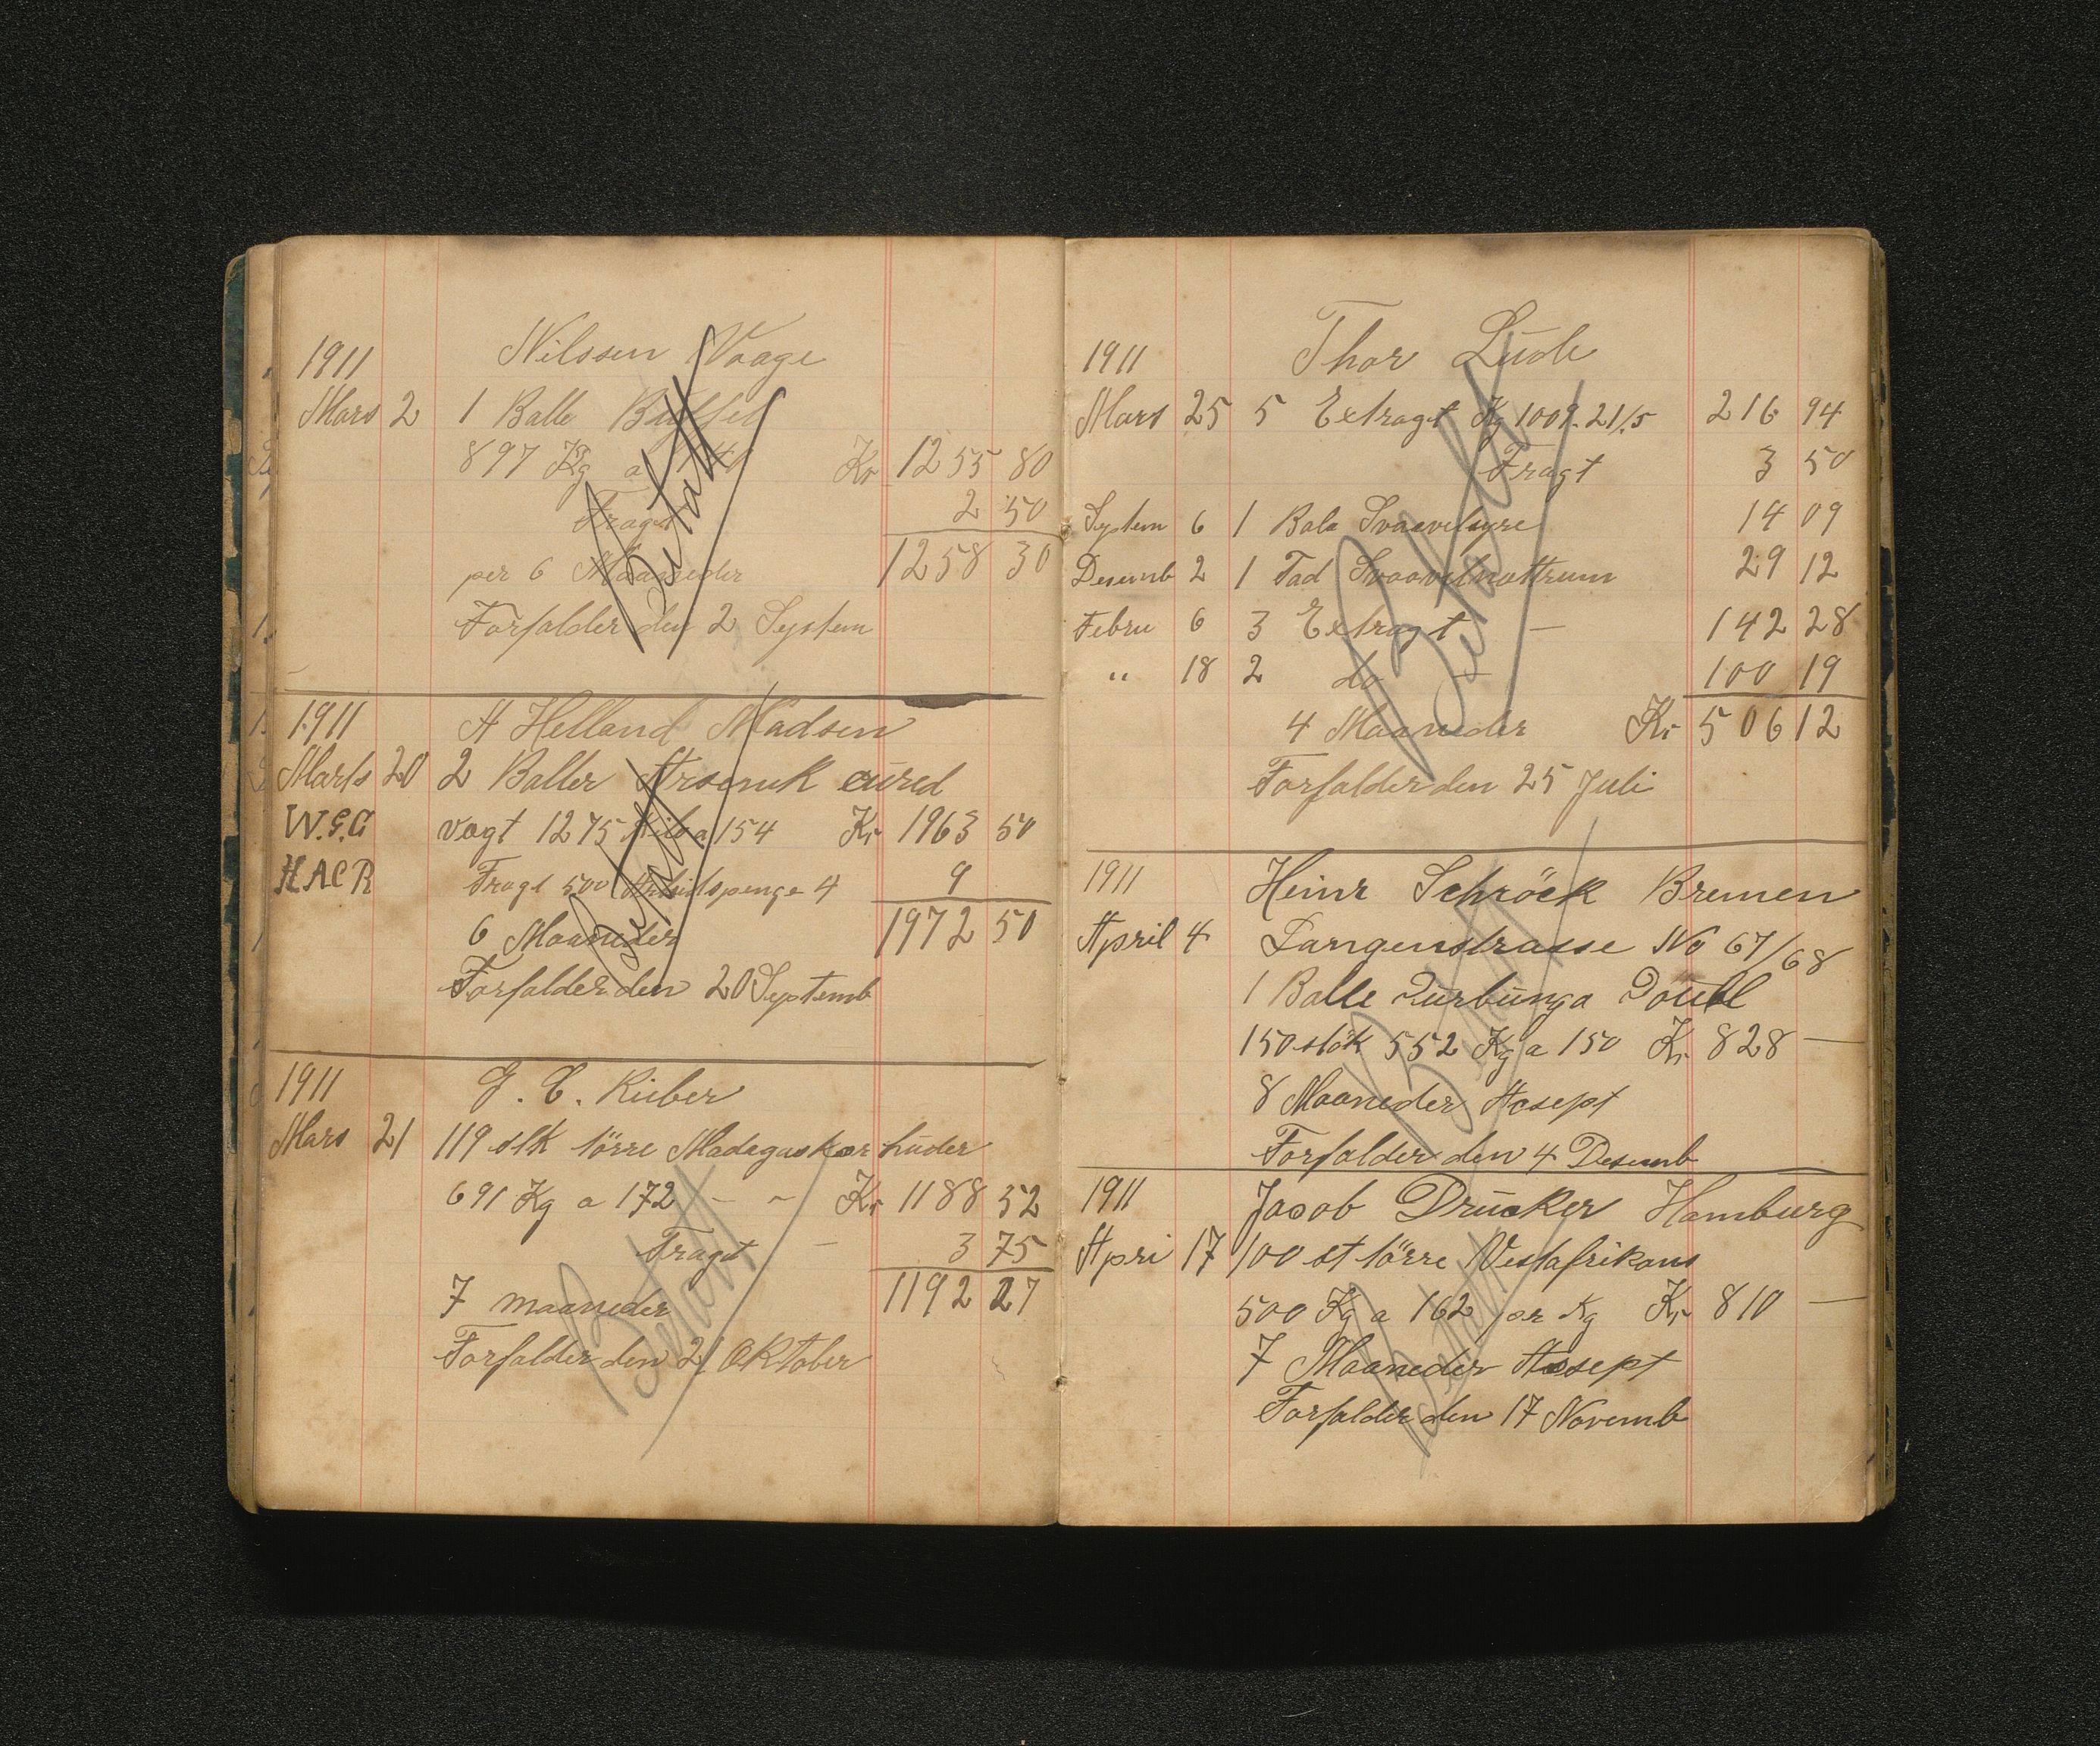 1911 Nilssen Vaage
Mars 2 1 Balle Bøffel
897 Kg a 140 Kr 1255 80
Fragt 2 50
1258 30
per 6 Maaneder
Forfalder den 2 System
Betalt
1911 A Helland Madsen
Marts 20 2 Baller Arsenik cured
W.G.G vægt 1275 Kilo a 154 Kr 1963 50
HACR Fragt 500 Arbeidspenge 4 9
6 Maaneder 1972 50
Forfalder den 20 Septemb
Betalt
1911 G. C. Rieber
Mars 21 119 stk törre Madagaskar huder
691 Kg a 172 - - Kr 1188 52
Fragt - 3 75
7 maaneder 1192 27
Forfalder den 21 Oktober
Betalt
1911 Thor Lude
Mars 25 5 Extragt Kg 1009. 21/.5 216 94
Fragt 3 50
System 6 1 Bala Svaavelsyre 14 09
Desemb 2 1 Fad Svaavelnattrum 29 12
Febru 6 3 Extragt — 142 28
" 18 2 do - 100 19
4 Maaneder Kr 506 12
Forfalder den 25 Juli
Betalt
1911 Heinr Schröck Bremen
April 4 Langenstrasse No 67/68
1 Balle Purbunga Doubl
150 stök 552 Kg a 150 Kr 828 —
8 Maaneder Acsept
Forfalder den 4 Desemb
Betalt
1911 Jacob Drucker Hamburg
Apri 17 100 st törre Vestafrikans
500 Kg a 162 per Kg Kr 810 —
7 Maaneder Acsept
Forfalder den 17 Novemb
Betalt